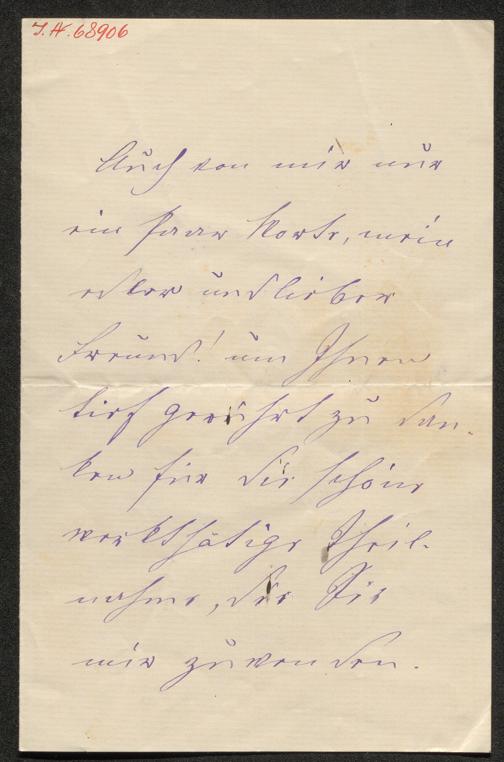 J. N. 68906
Auch von mir nur
ein paar Worte, mein
edler und lieber
Freund! um Ihnen
tief gerührt zu dan-
ken für die schöne
werkthätige Theil-
nahme, die Sie
mir zuwenden.